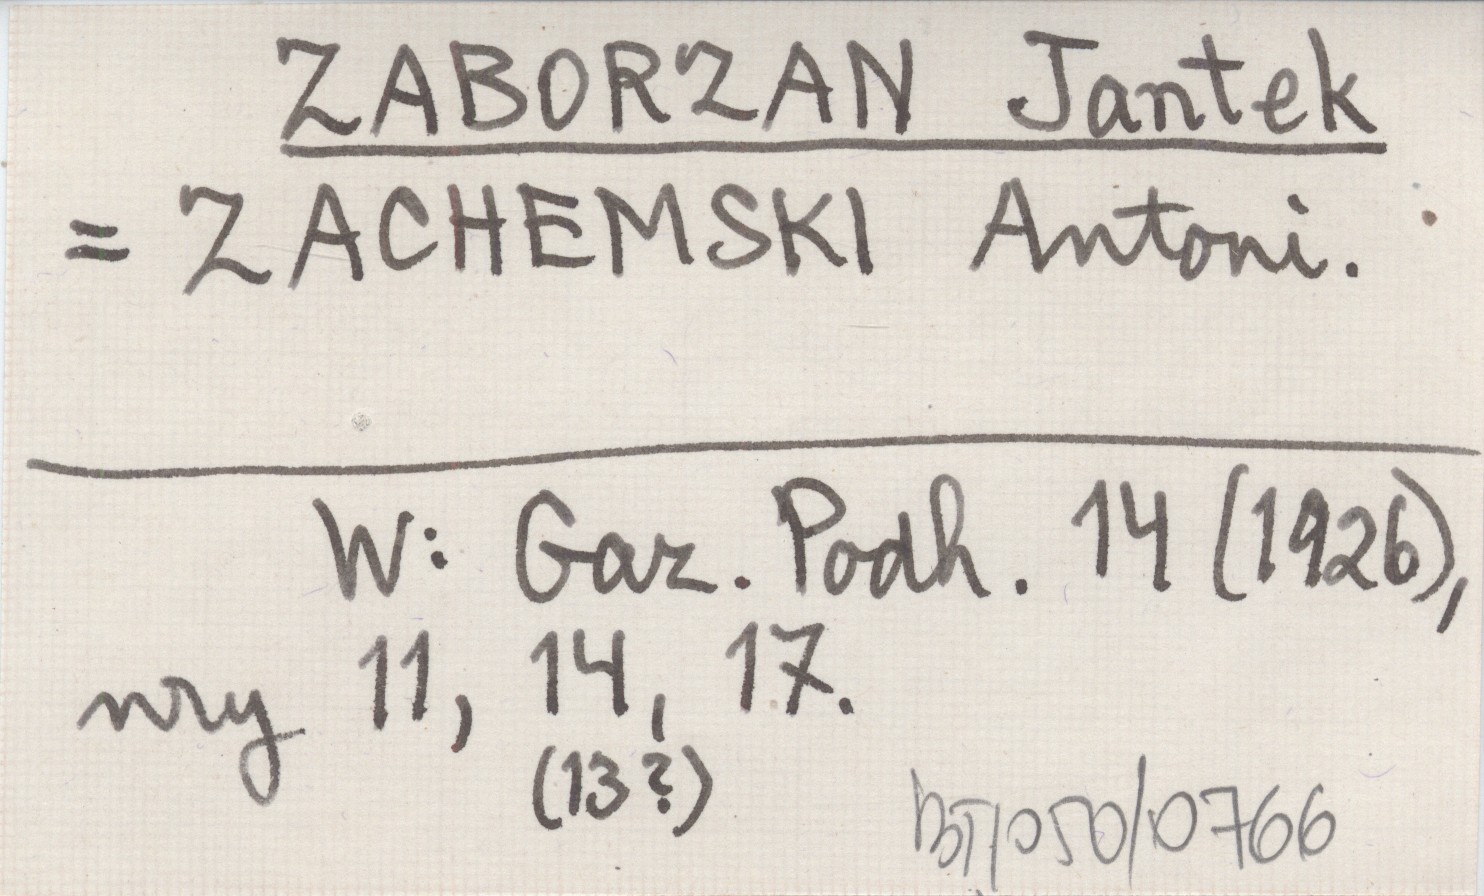 ZABORZAN Jantek
= ZACHEMSKI Antoni.
W: Gaz. Podh. 14 (1926),
nry 11, 14, 17.
(13?)
BT/050/0766